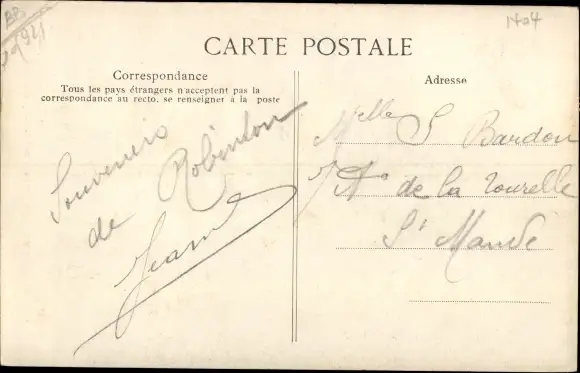 1404
CARTE POSTALE
Correspondance
Tous les pays étrangers n'acceptent pas la
correspondance au recto, se renseigner à la poste
Souvenirs
de Robinson
Jeanne
Adresse
Melle S Bardon
de la Tourelle
St Mandé